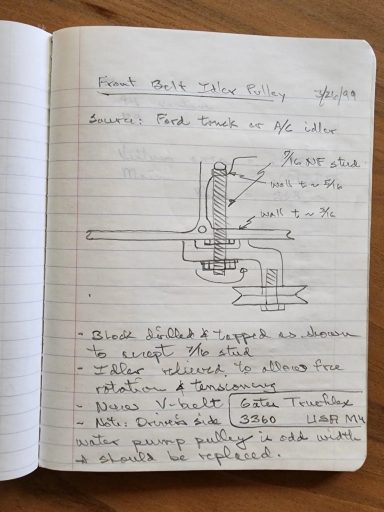 Front Belt Idler Pulley 3/26/99
Source: Ford truck or A/C idler
7/16 NF stud
wall t ~ 5/16
wall t ~ 3/16
- Block drilled & tapped as shown
to accept 7/16 stud
- Idler relieved to allow free
rotation & tensioning
- Narrow V-belt
Gates Truckflex
3360 USA M4
- Note: Driver's side
water pump pulley is odd width
& should be replaced.